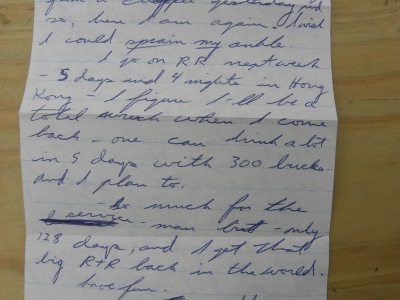 yesterday, and
so, here I am again. I wish
I could sprain my ankle.
I go on RR next week
- 5 days and 4 nights in Hong
Kong - I figure I'll be a
total wreck when I come
back - one can drink a lot
in 5 days with 300 bucks.
and I plan to.
- So much for the
- man but - only
128 days, and I get that
big R+R back in the world.
have fun.